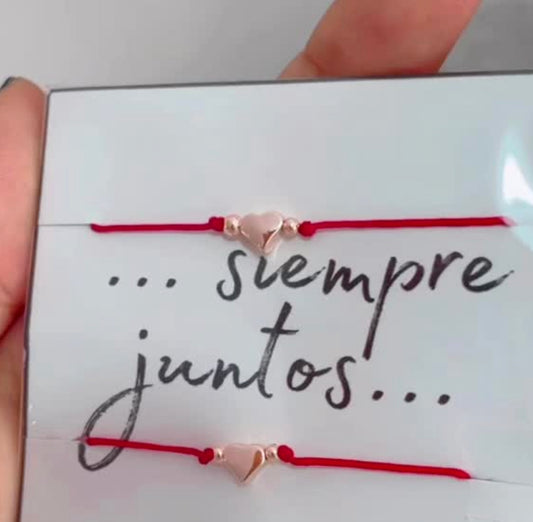 ... siempre
juntos...